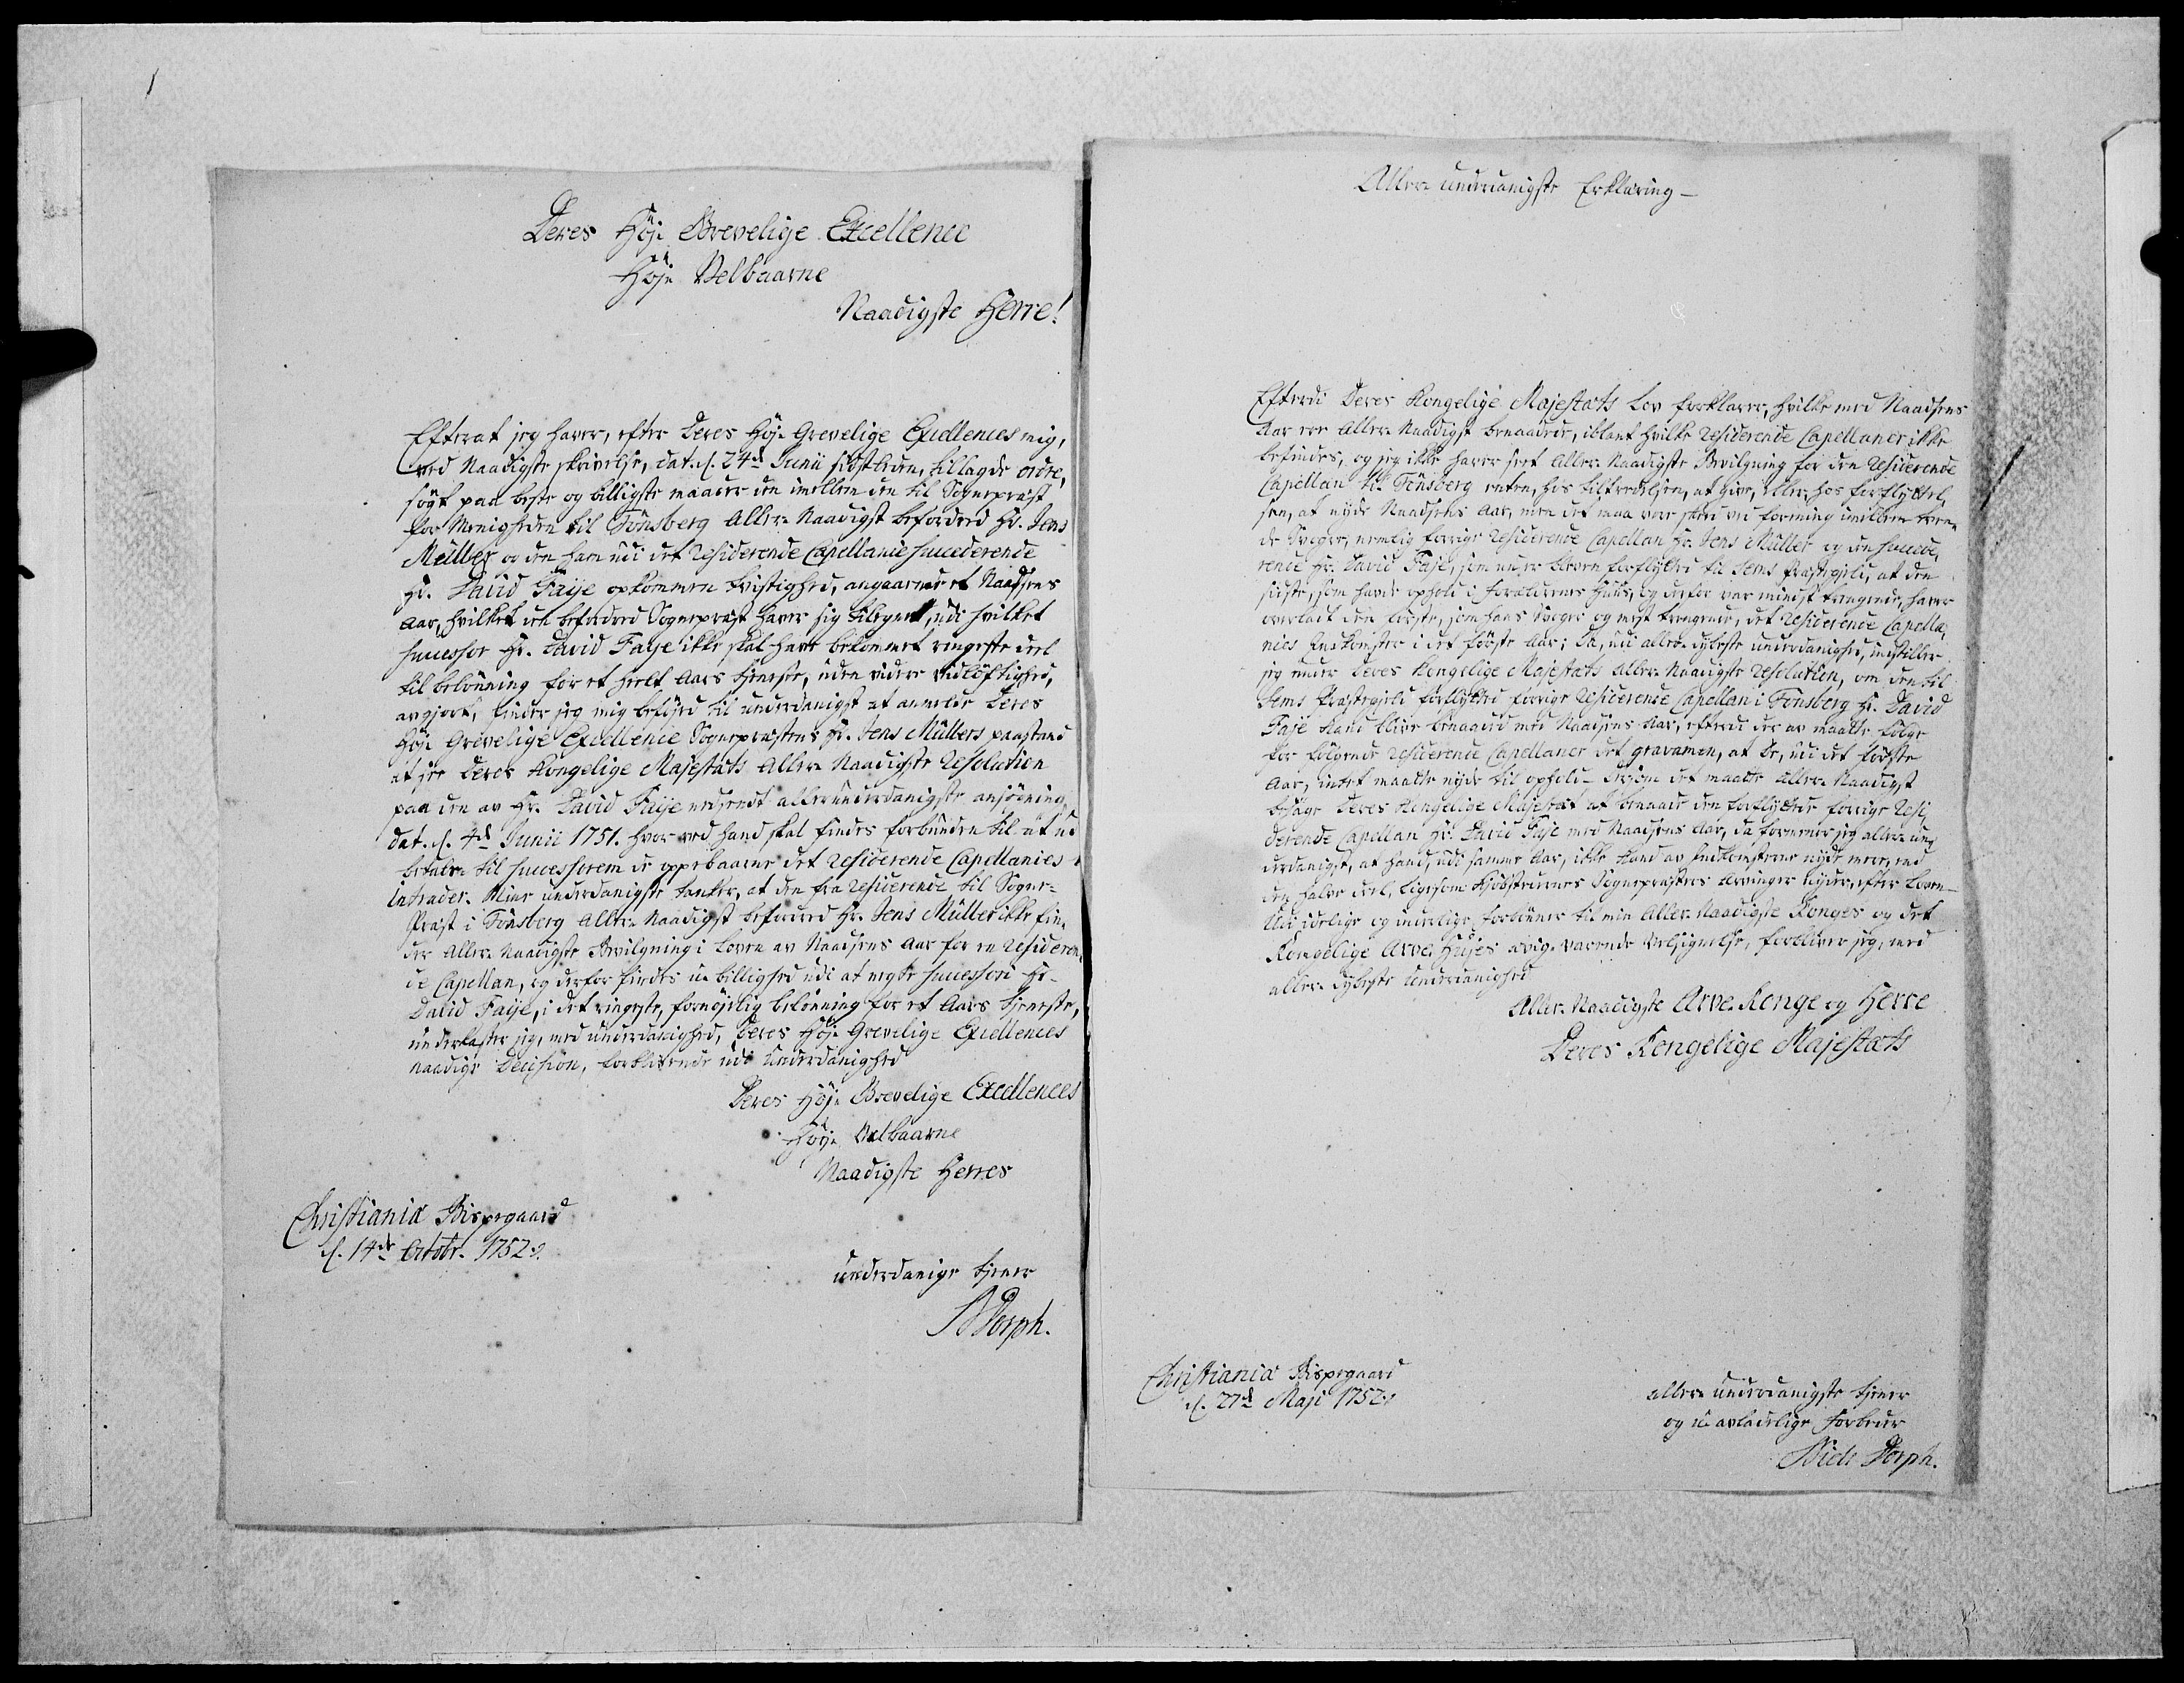 Deres Høje Grevelige Excellence
Høje Velbaarne
Naadigste Herre!
Efterat jeg haver, efter Deres Høje Grevelige Excellences mig,
ved Naadigste skrivelse, dat. d. 24de Junii sidstleden, tillagde ordre,
søgt paa beste og billigste maader den imellem den til Sognepræst
for Menigheden til Tønsberg Aller-Naadigst beforderede Hr. Jens
Müller og den ham udi det residerende Capellanie succederende
Hr. David Faije opkommen tvistighed, angaaende et Naadsens
Aar, hvilket den beforderede Sognepræst haver sig tilegnet, udi hvilket
successor Hr. David Faije ikke skal have bekommet ringeste deel
til belønning for et heelt Aars tjeneste, uden videre vidløftighed,
avgjort, finder jeg mig beføjed til underdanigst at anmelde Deres
Høje Grevelige Excellence Sognepræstens Hr. Jens Müllers paastand
at see Deres Kongelige Majestæts Aller-Naadigste resolution
paa den av Hr. David Faije nedsendt allerunderdanigste ansøgning
dat. d. 4de Junii 1751. hvor ved hand skal findes forbunden til at ud
betale til successorem de oppebaarne det residerende Capellanies
intrader. Mine underdanigste tanker, at den fra residerende til Sogne-
Præst i Tønsberg Aller-Naadigst beforderede Hr. Jens Müller ikke fin-
der Aller-Naadigste Bevilgning i Loven av Naadsens Aar for en residere-
de Capellan, og derfor findes u-billighed udi at negte successori Hr.
David Faije, i det ringeste, fornøjelig belønning for et Aars tjeneste,
underkaster jeg, med underdanighed, Deres Høje Grevelige Excellences
naadige Decision, forblivende udi underdanighed
Deres Høje Grevelige Excellences
Høje Velbaarne
Naadigste Herres
Christiania Bispegaard
d. 14de Octobr. 1752.
underdanige tjener
N Dorph.
Aller-underdanigste Erklæring
Efterdi Deres Kongelige Majestæts Lov forklarer, hvilke med Naadsens
Aar ere Aller-Naadigst benaadede, iblant hvilke residerende Capellaner ikke
befindes, og jeg ikke haver seet Aller-Naadigste Bevilgning for den residerende
Capellan til Tønsberg enten, hos tiltrædelsen, at give, eller, hos forflyttel-
sen, at nyde Naadsens Aar, men det maa være skeed ved forening imellem tven-
de Svogre, nemlig forrige residerende Capellan Hr. Jens Müller og den succede-
rende Hr. David Faje, som nu er bleven forflytted til Sems Præstegield, at den
sidste, som havde ophold i Forældrenes Huus, og derfor var mindst trængende, haver
overladt den første, som hans Svoger og mest trængende, det residerende Capella-
nies Indkomster i det første Aar; Da, udi aller-dybeste underdanighed, indstiller
jeg under Deres Kongelige Majestæts Aller-Naadigste resolution, om den til
Sems Præstegield forflyttede forrige residerende Capellan i Tønsberg Hr. David
Faje kand blive benaaded med Naadsens Aar, efterdi der av maatte følge
for følgende residerende Capellaner det gravamen, at de, udi det første
Aar, intet maatte nyde til ophold. dersom det maatte Aller-Naadigst
behage Deres Kongelige Majestæt at benaade den forflyttede forrige resi-
derende Capellan Hr. David Faje med Naadsens Aar, da formener jeg aller-un-
derdanigst, at hand, udi samme Aar, ikke kand av Indkomsterne nyde mere, end
den halve deel, ligesom Kjøbstædernes Sognepræsters Arvinger nyder, efter Loven.
Udi idelige og inderlige forbønner til min Aller-Naadigste Konges og det
Kongelige Arve-Huuses ævig-varende Velsignelse, forbliver jeg, med
aller-dybeste underdanighed
Aller-Naadigste Arve-Konge og Herre
Deres Kongelige Majestæts
Christiania Bispegaard
d. 27de Maji 1752.
aller-underdanigste tjener
og u-avladelige forbeder
Niels Dorph.